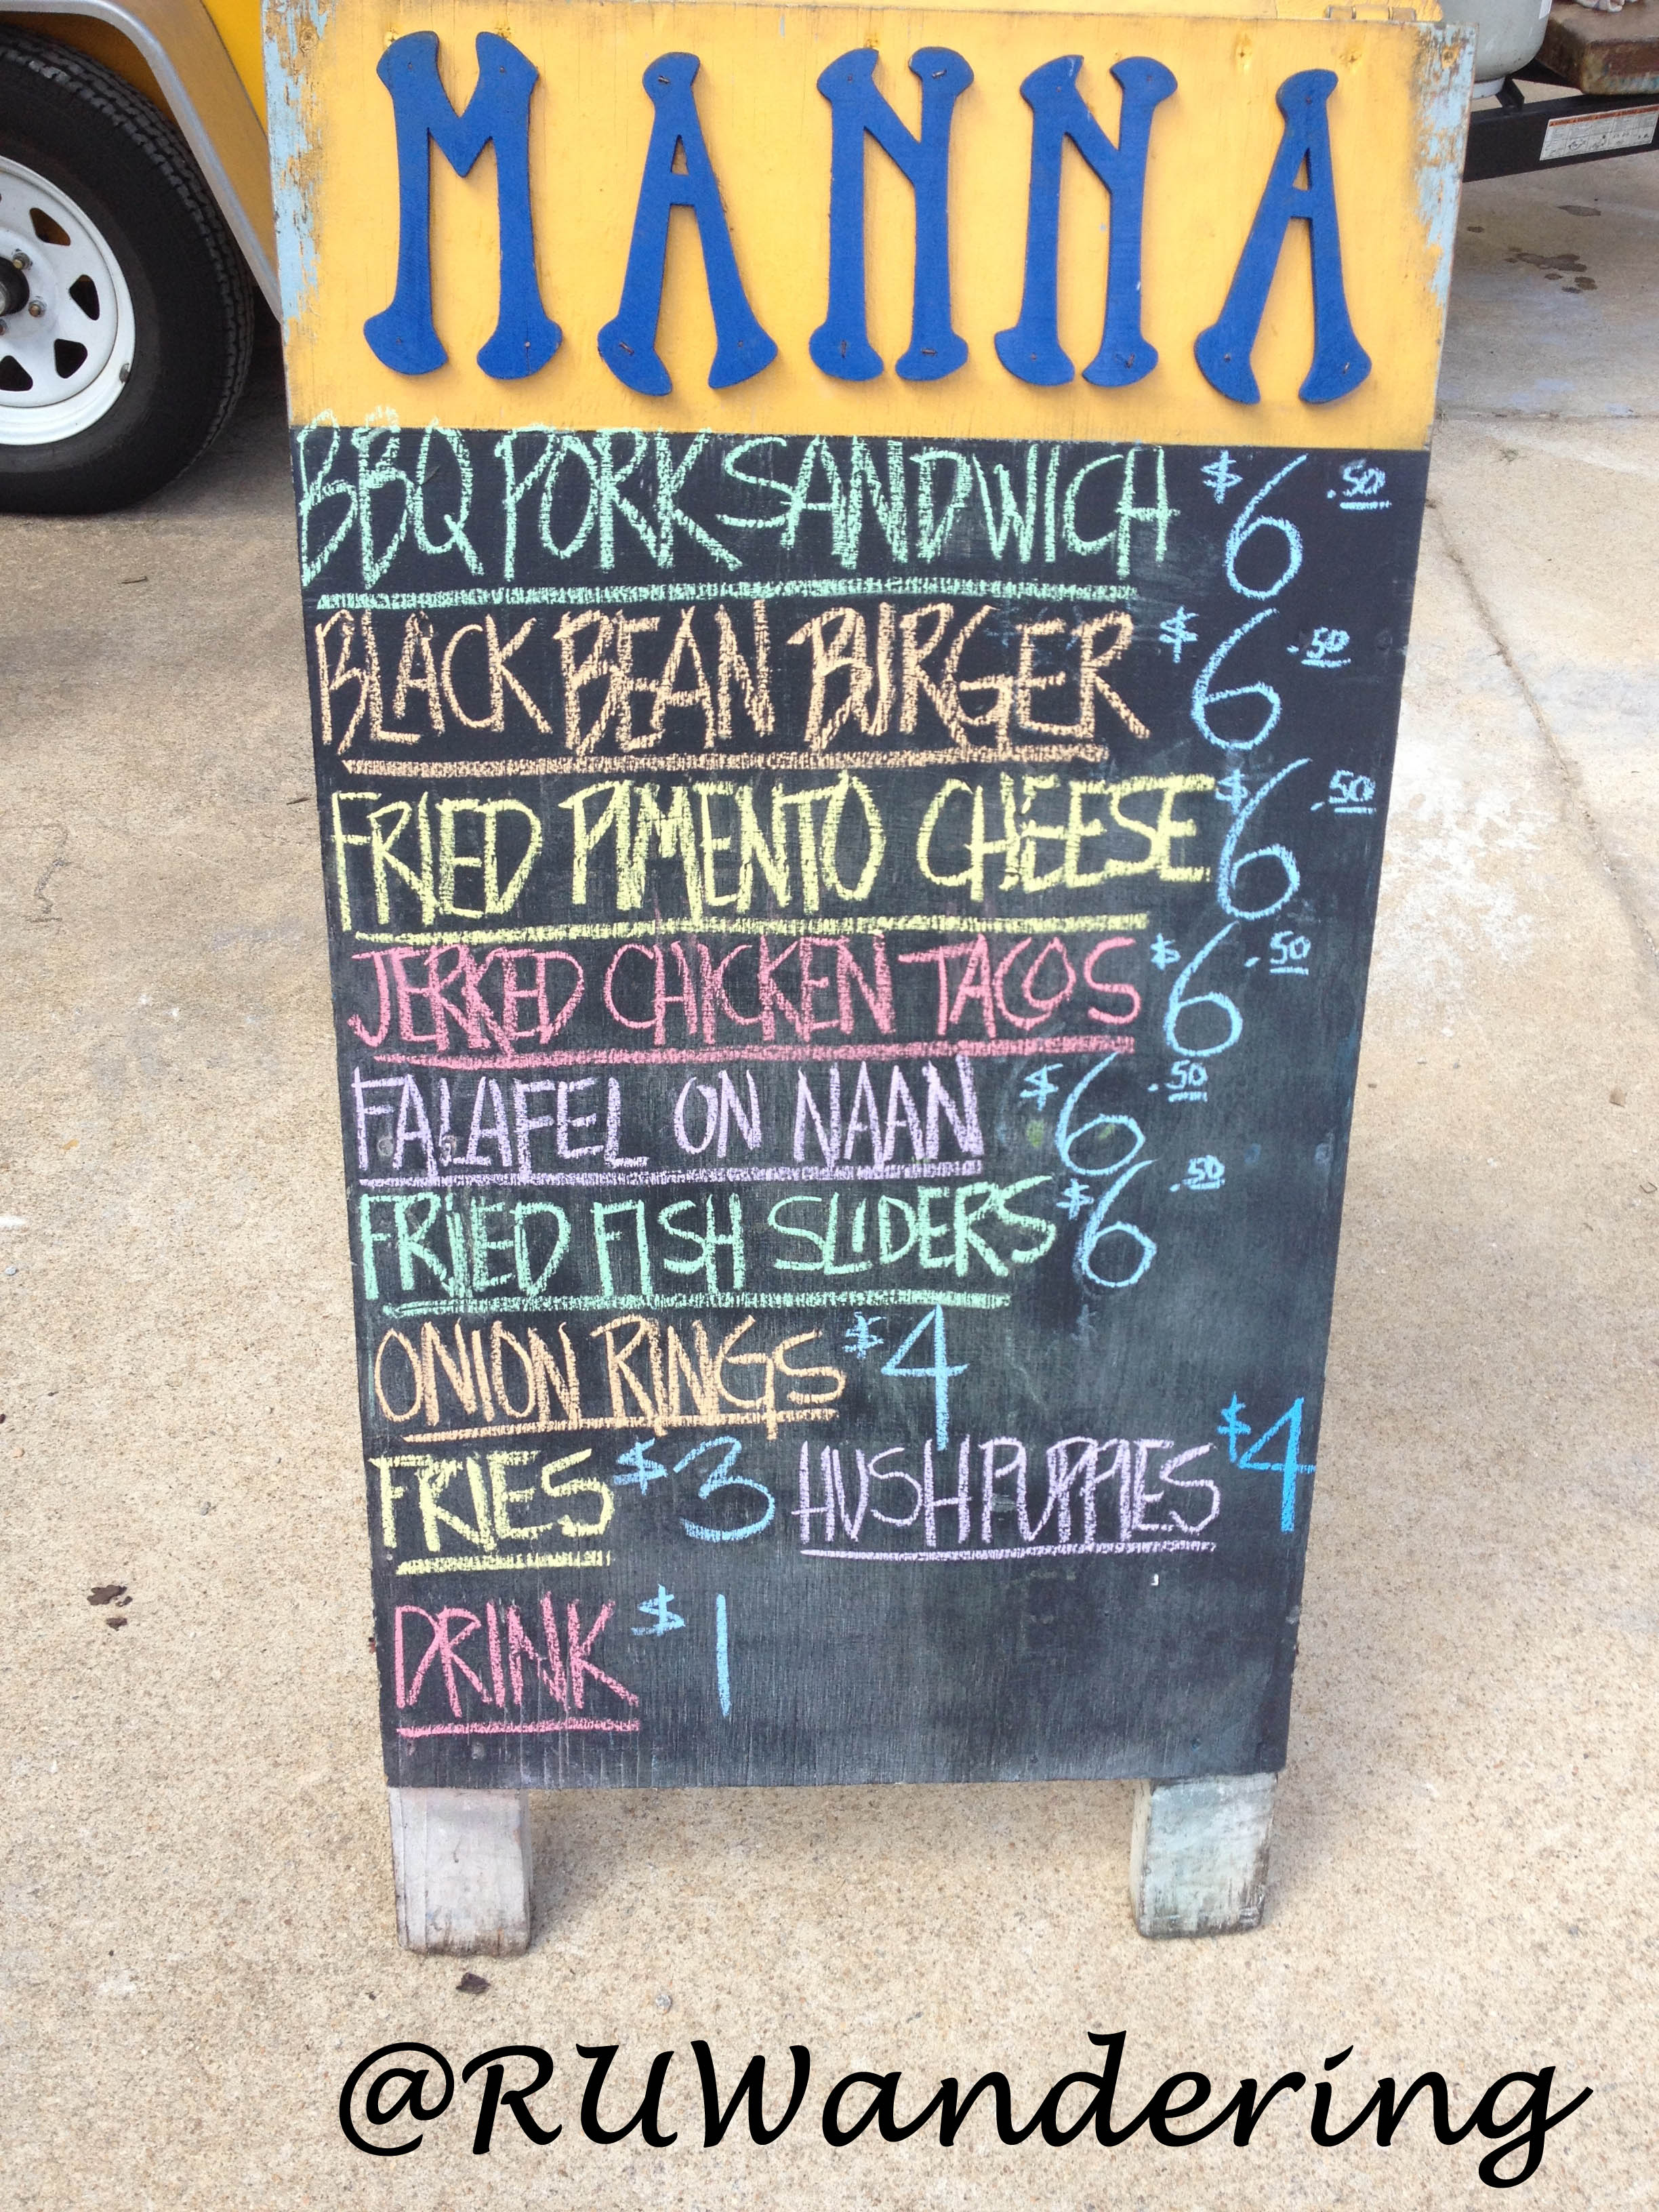 MANNA
BBQ PORK SANDWICH $6.50
BLACK BEAN BURGER $6.50
FRIED PIMENTO CHEESE $6.50
JERKED CHICKEN TACOS $6.50
FALAFEL ON NAAN $6.50
FRIED FISH SLIDERS $6.50
ONION RINGS $4
FRIES $3 HUSHPUPPIES $4
DRINK $1
@RUWandering